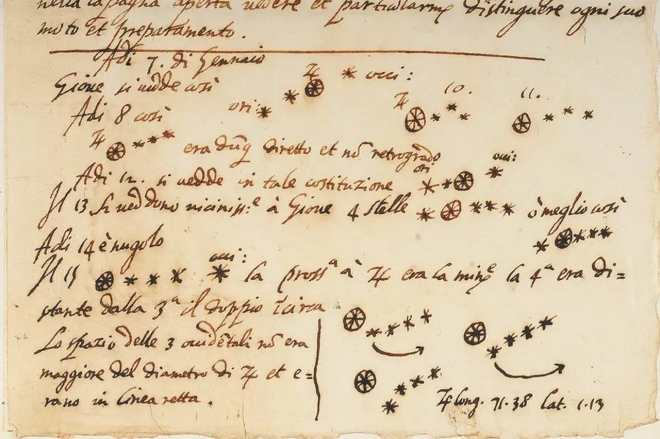 nella pagina aperta vedere et particularmẽ distinguere ogni suo
moto et preparamento.
Adi 7. di Gennaio
Gioue si vedde così ♃ occi:
ori: ♃ 10. 11.
Adi 8 così
♃ era dũq̃ diretto et nõ retrogrado
Adi 12. si vedde in tale costituzione ori occi:
Il 13 si veddono viciniss.e à Gioue 4 stelle ò meglio così
Adi 14 è nugolo
Il 15 occi: la pross.a à ♃ era la min.e la 4.a era di=
stante dalla 3.a il doppio ĩ circa
Lo spazio delle 3 occidẽtali nõ era
maggiore del diametro di ♃ et e=
rano in linea retta.
♃ long. 71.38 lat. 1.13